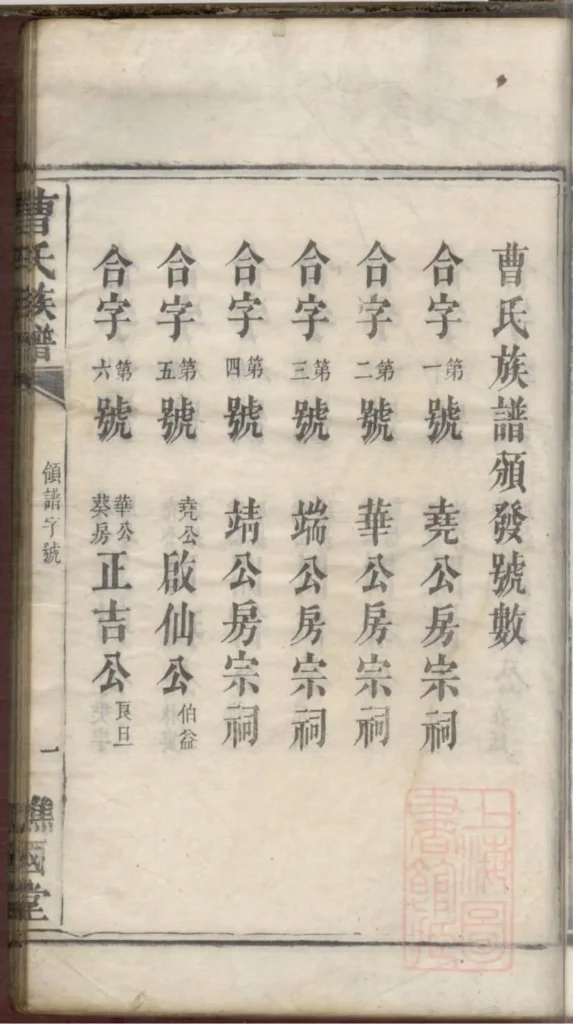 曹氏族譜頒發號數
合字第一號 堯公房宗祠
合字第二號 華公房宗祠
合字第三號 端公房宗祠
合字第四號 靖公房宗祠
合字第五號 堯公啟仙公伯益
合字第六號 華公葵房正吉公良旦
曹氏族譜
領譜字號
一
譙國堂
上海圖書館藏